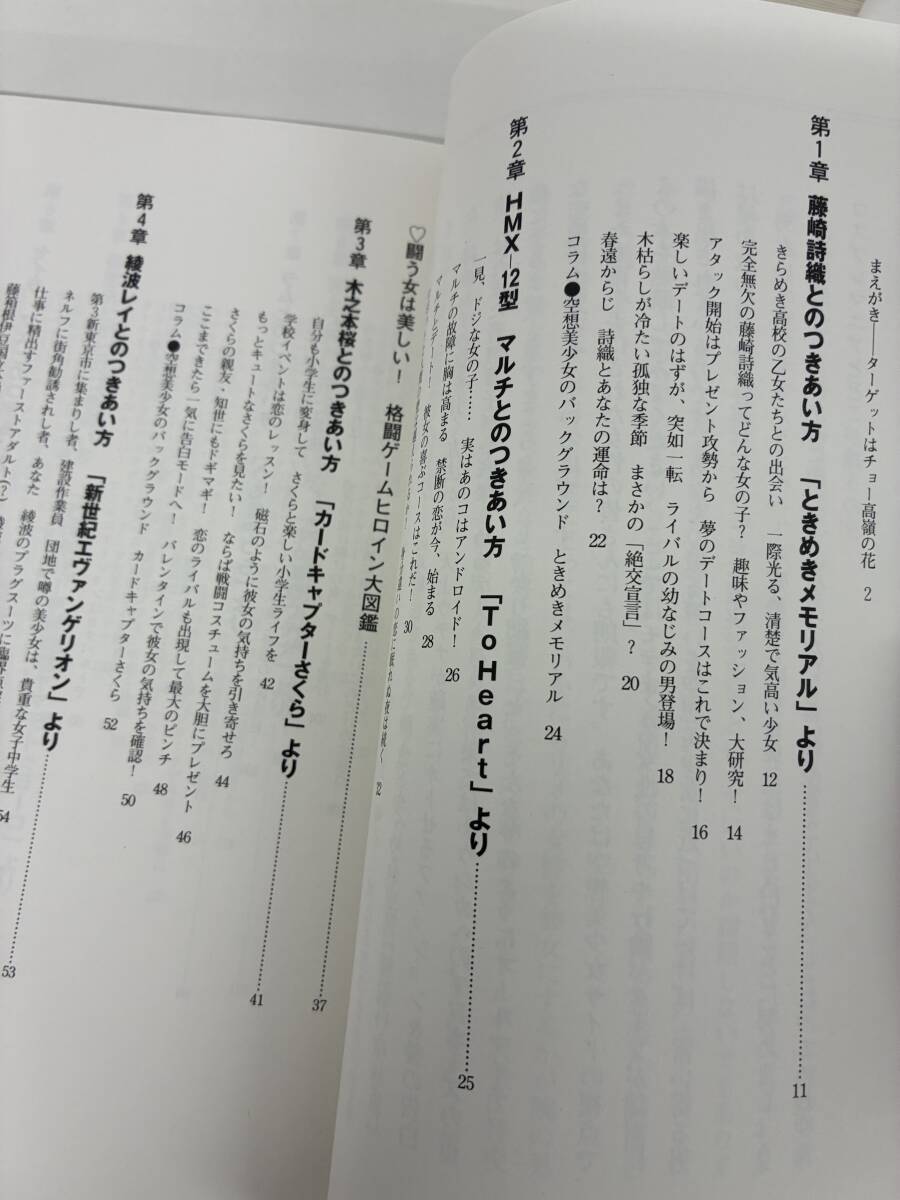 まえがき──ターゲットはチョー高嶺の花 2
第1章 藤崎詩織とのつきあい方 「ときめきメモリアル」より……11
きらめき高校の乙女たちとの出会い 一際光る、清楚で気高い少女 12
完全無欠の藤崎詩織ってどんな女の子? 趣味やファッション、大研究! 14
アタック開始はプレゼント攻勢から 夢のデートコースはこれで決まり! 16
楽しいデートのはずが、突如一転 ライバルの幼なじみの男登場! 18
木枯らしが冷たい孤独な季節 まさかの「絶交宣言」? 20
春遠からじ 詩織とあなたの運命は? 22
コラム●空想美少女のバックグラウンド ときめきメモリアル 24
第2章 HMX-12型 マルチとのつきあい方 「ToHeart」より……25
一見、ドジな女の子…… 実はあのコはアンドロイド! 26
マルチの故障に胸は高まる 禁断の恋が今、始まる 28
マルチとデート! 彼女の喜ぶコースはこれだ! 30
夜は続く 32
♡闘う女は美しい! 格闘ゲームヒロイン大図鑑……37
第3章 木之本桜とのつきあい方 「カードキャプターさくら」より……41
自分も小学生に変身して さくらと楽しい小学生ライフを 42
学校イベントは恋のレッスン! 磁石のように彼女の気持ちを引き寄せろ 44
もっとキュートなさくらを見たい! ならば戦闘コスチュームを大胆にプレゼント 46
さくらの親友・知世にもドギマギ! 恋のライバルも出現して最大のピンチ 48
ここまできたら一気に告白モードへ! バレンタインで彼女の気持ちを確認! 50
コラム●空想美少女のバックグラウンド カードキャプターさくら 52
第4章 綾波レイとのつきあい方 「新世紀エヴァンゲリオン」より……53
第3新東京市に集まりし者、建設作業員 団地で噂の美少女は、貴重な女子中学生 54
ネルフに街角勧誘されし者、あなた 綾波のプラグスーツに臨界
仕事に精出すファーストアダルト(?)
藤箱根伊豆国立